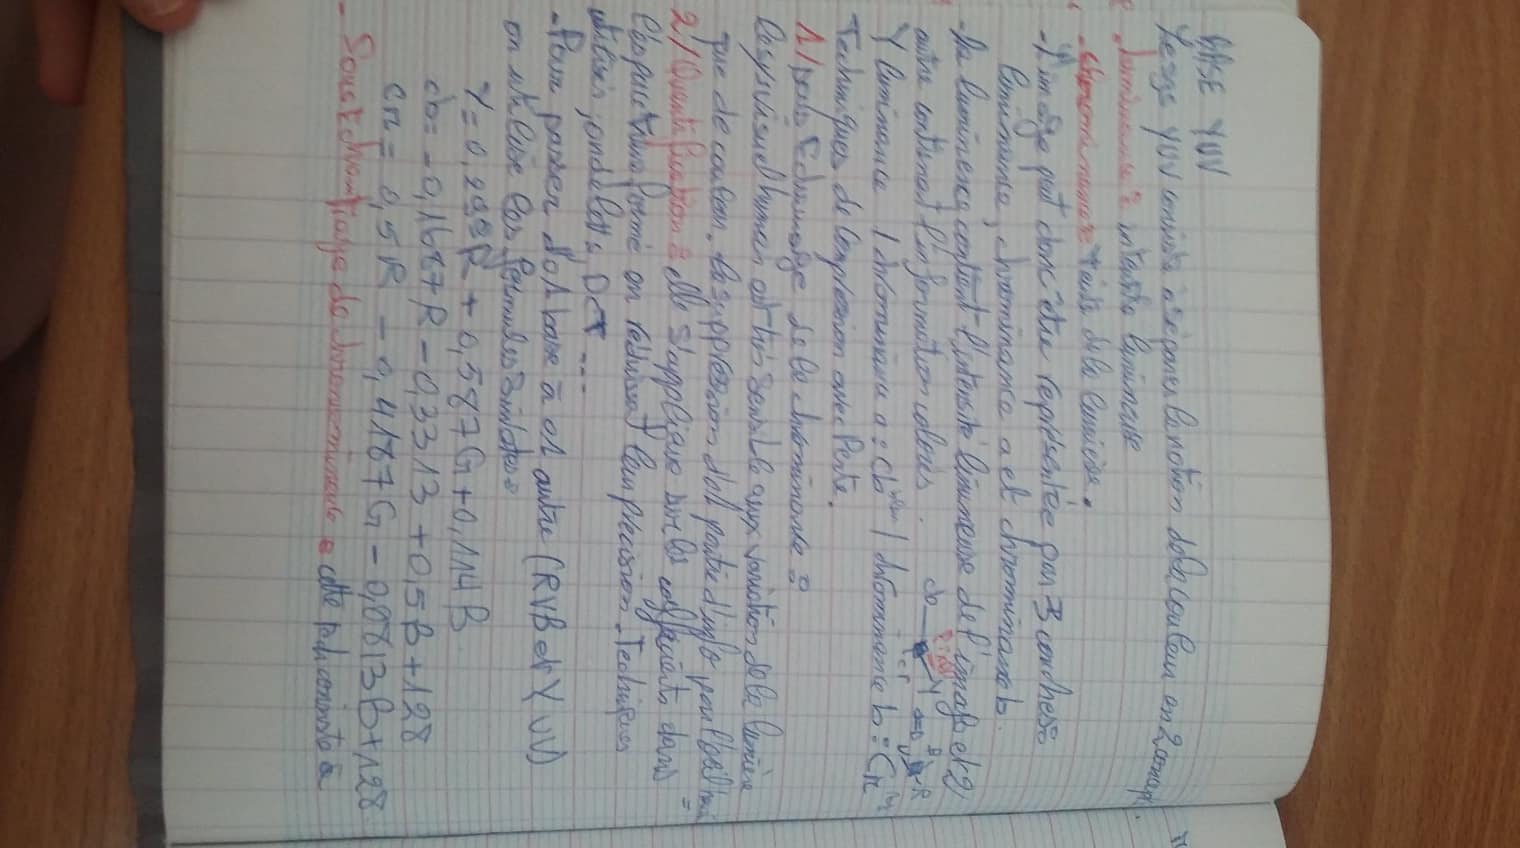 BASE YUV
Le sys YUV consiste à séparer la notion de la couleur en 2 concept.
- luminance : intensité lumineuse
- chrominance : teinte de la lumière.
- L'image peut donc être représentée par 3 couches
luminance, chrominance a et chrominance b.
- La luminence contient l'intensité lumineuse de l'image et 2
autre contienent l'information colorés.
Y luminance / chrominance a : cb / chrominance b : Cr
Techniques de Compression avec Perte.
1/ sous Echantillonage de la chrominance :
Le sys visuel humain est très sensible aux variation de la lumière
que de couleur. La suppression d'1 partie d'info par l'œil
2/ Quantification : elle s'applique sur les coefficients dans
l'espace transformé en réduisant leur précision. Techniques
utilisés, ondelette, DCT ....
- Pour passer d'1 base à 1 autre (RVB et YUV)
on utilise les formules suivates :
Y = 0,299R + 0,587G + 0,114B
cb = -0,1687R - 0,3313 + 0,5B + 128
Cr = 0,5R - 0,4187G - 0,0813B + 128
- Sous echantillonage de chrominance : cette tech consiste à